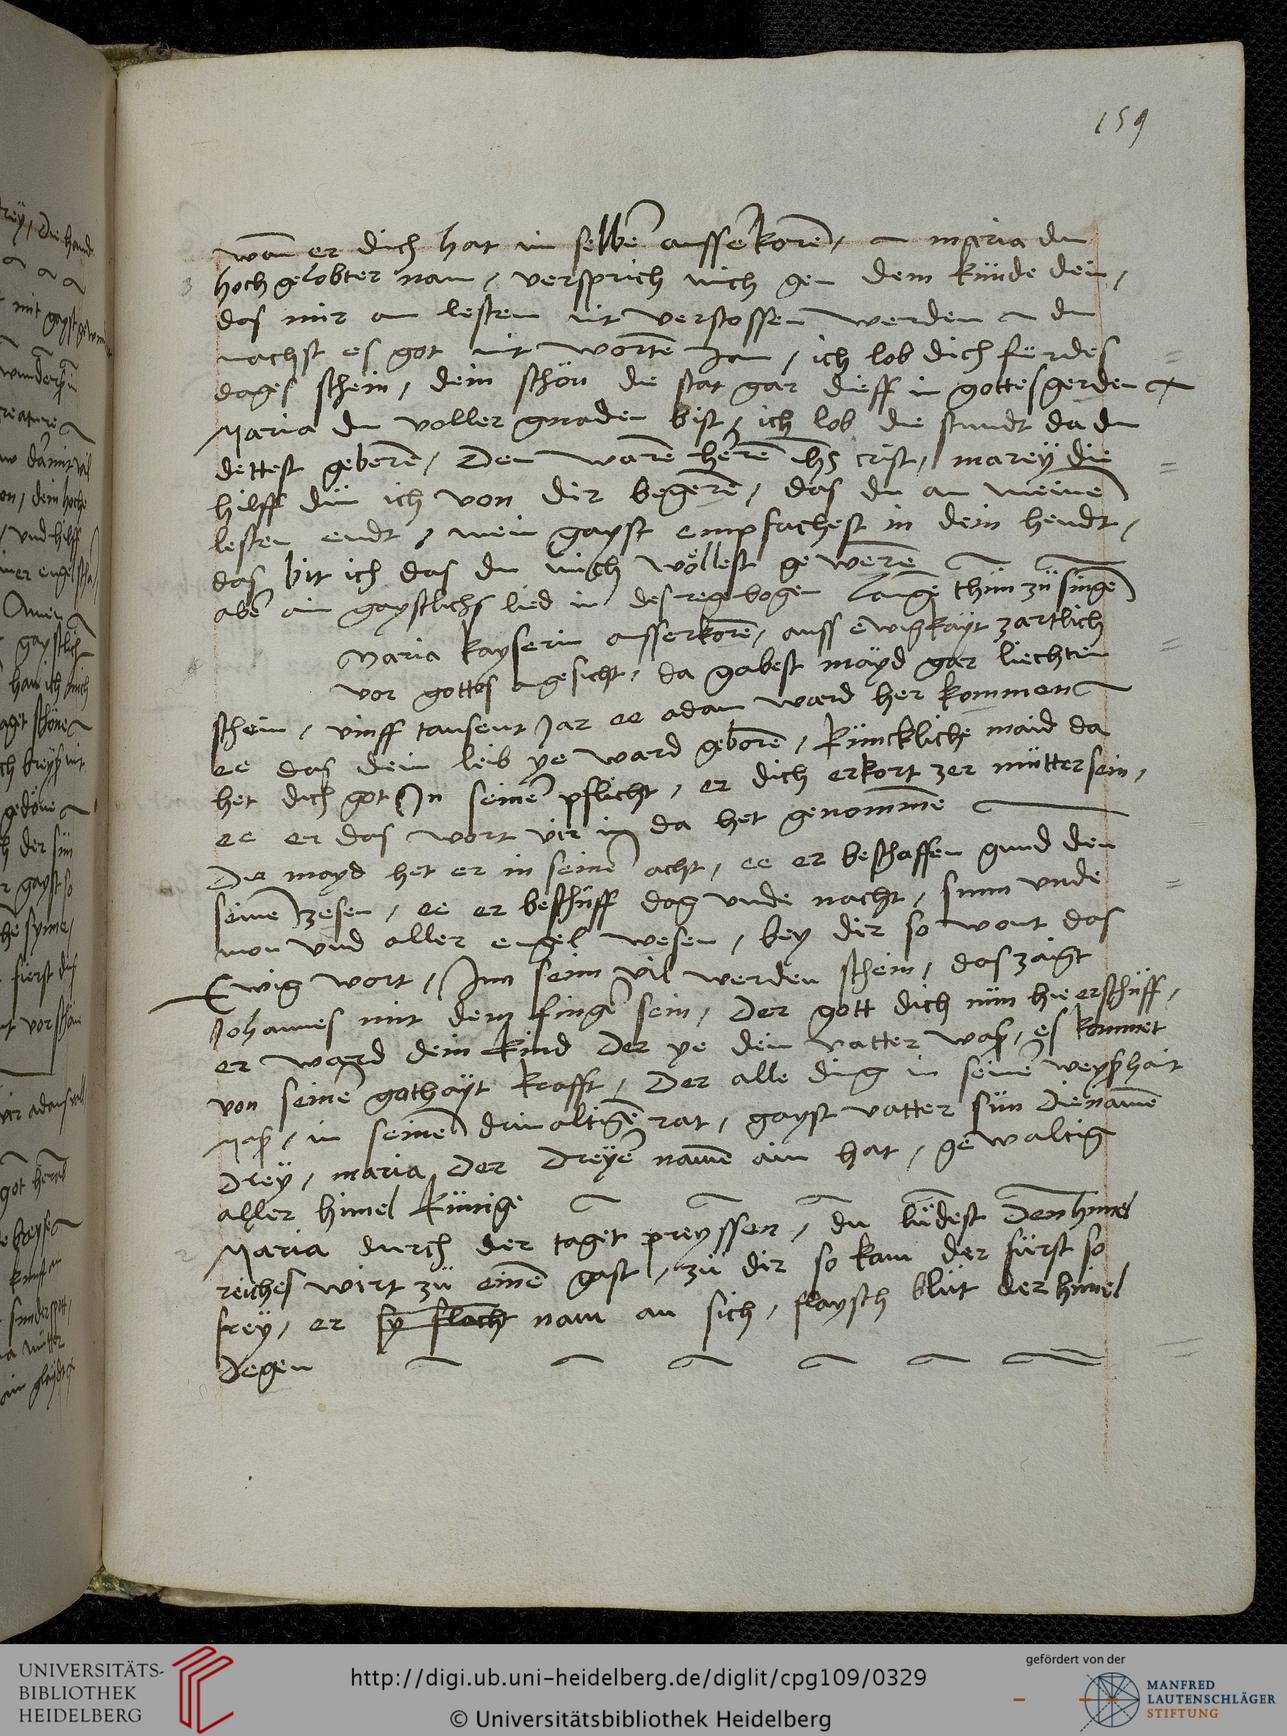 159
wan er dich hat im selben ausserkoren, maria du
hoch gelobter nam, versprich mich gen dem kinde dein,
das mir am lesten nit verstossen werden du
machst es got mit worten zam, ich lob dich fir des
dages schein, dein schön die stat gar dieff in gottes gerden
Maria du voller gnaden bist, ich lob die stundt da du
dettest geberen, Den waren heren ihs crist, marey die
hilff bin ich von dir begeren, das du an meinem
lesten endt, mein gayst empfachest in dein hendt,
das bit ich das du mich wöllest geweren
aber ain gaystlichs lied in des regenbogen langen thün zü singen
Maria kayserin ausserkoren, auss ewigkayt zartlich
vor gottes angesicht, da gabest mayd gar liechten
schein, vinff tausent Jar ee adam ward her kommen
ee das dein leib ye ward geboren, künckliche maid da
het dich got In seiner pflicht, er dich erkort zer mütter sein,
ee er das wort vir in da het genommen
Die mayd het er in seiner acht, ee er beschaffen gund den
seinen zesen, ee er beschüff dag unde nacht, sunn unde
mon und aller engel wesen, bey dir so wont das
Ewig wort, Inn seim vil werden schein, das zaigt
Johannes mit dem finger sein, Der gott dich nün hie erschüff,
er ward dein kind Der ye dein vatter was, es kommet
von seiner gothayt krafft, Der alle ding in seiner weyshait
mas, in seinem drinaltigen rat, gayst vatter sün Die namen
Drey, maria Der Dreyer namen ain hat, gewaltig
aller himel künige
Maria durch der taget preyssen, du lüdest Den himel
reiches wirt zü einem gast, zü dir so kam der fürst so
frey, er sy flach nam an sich, flaysch blüt der himel
Degen
UNIVERSITÄTS-
BIBLIOTHEK
HEIDELBERG
http://digi.ub.uni-heidelberg.de/diglit/cpg109/0329
© Universitätsbibliothek Heidelberg
gefördert von der
MANFRED
LAUTENSCHLÄGER
STIFTUNG